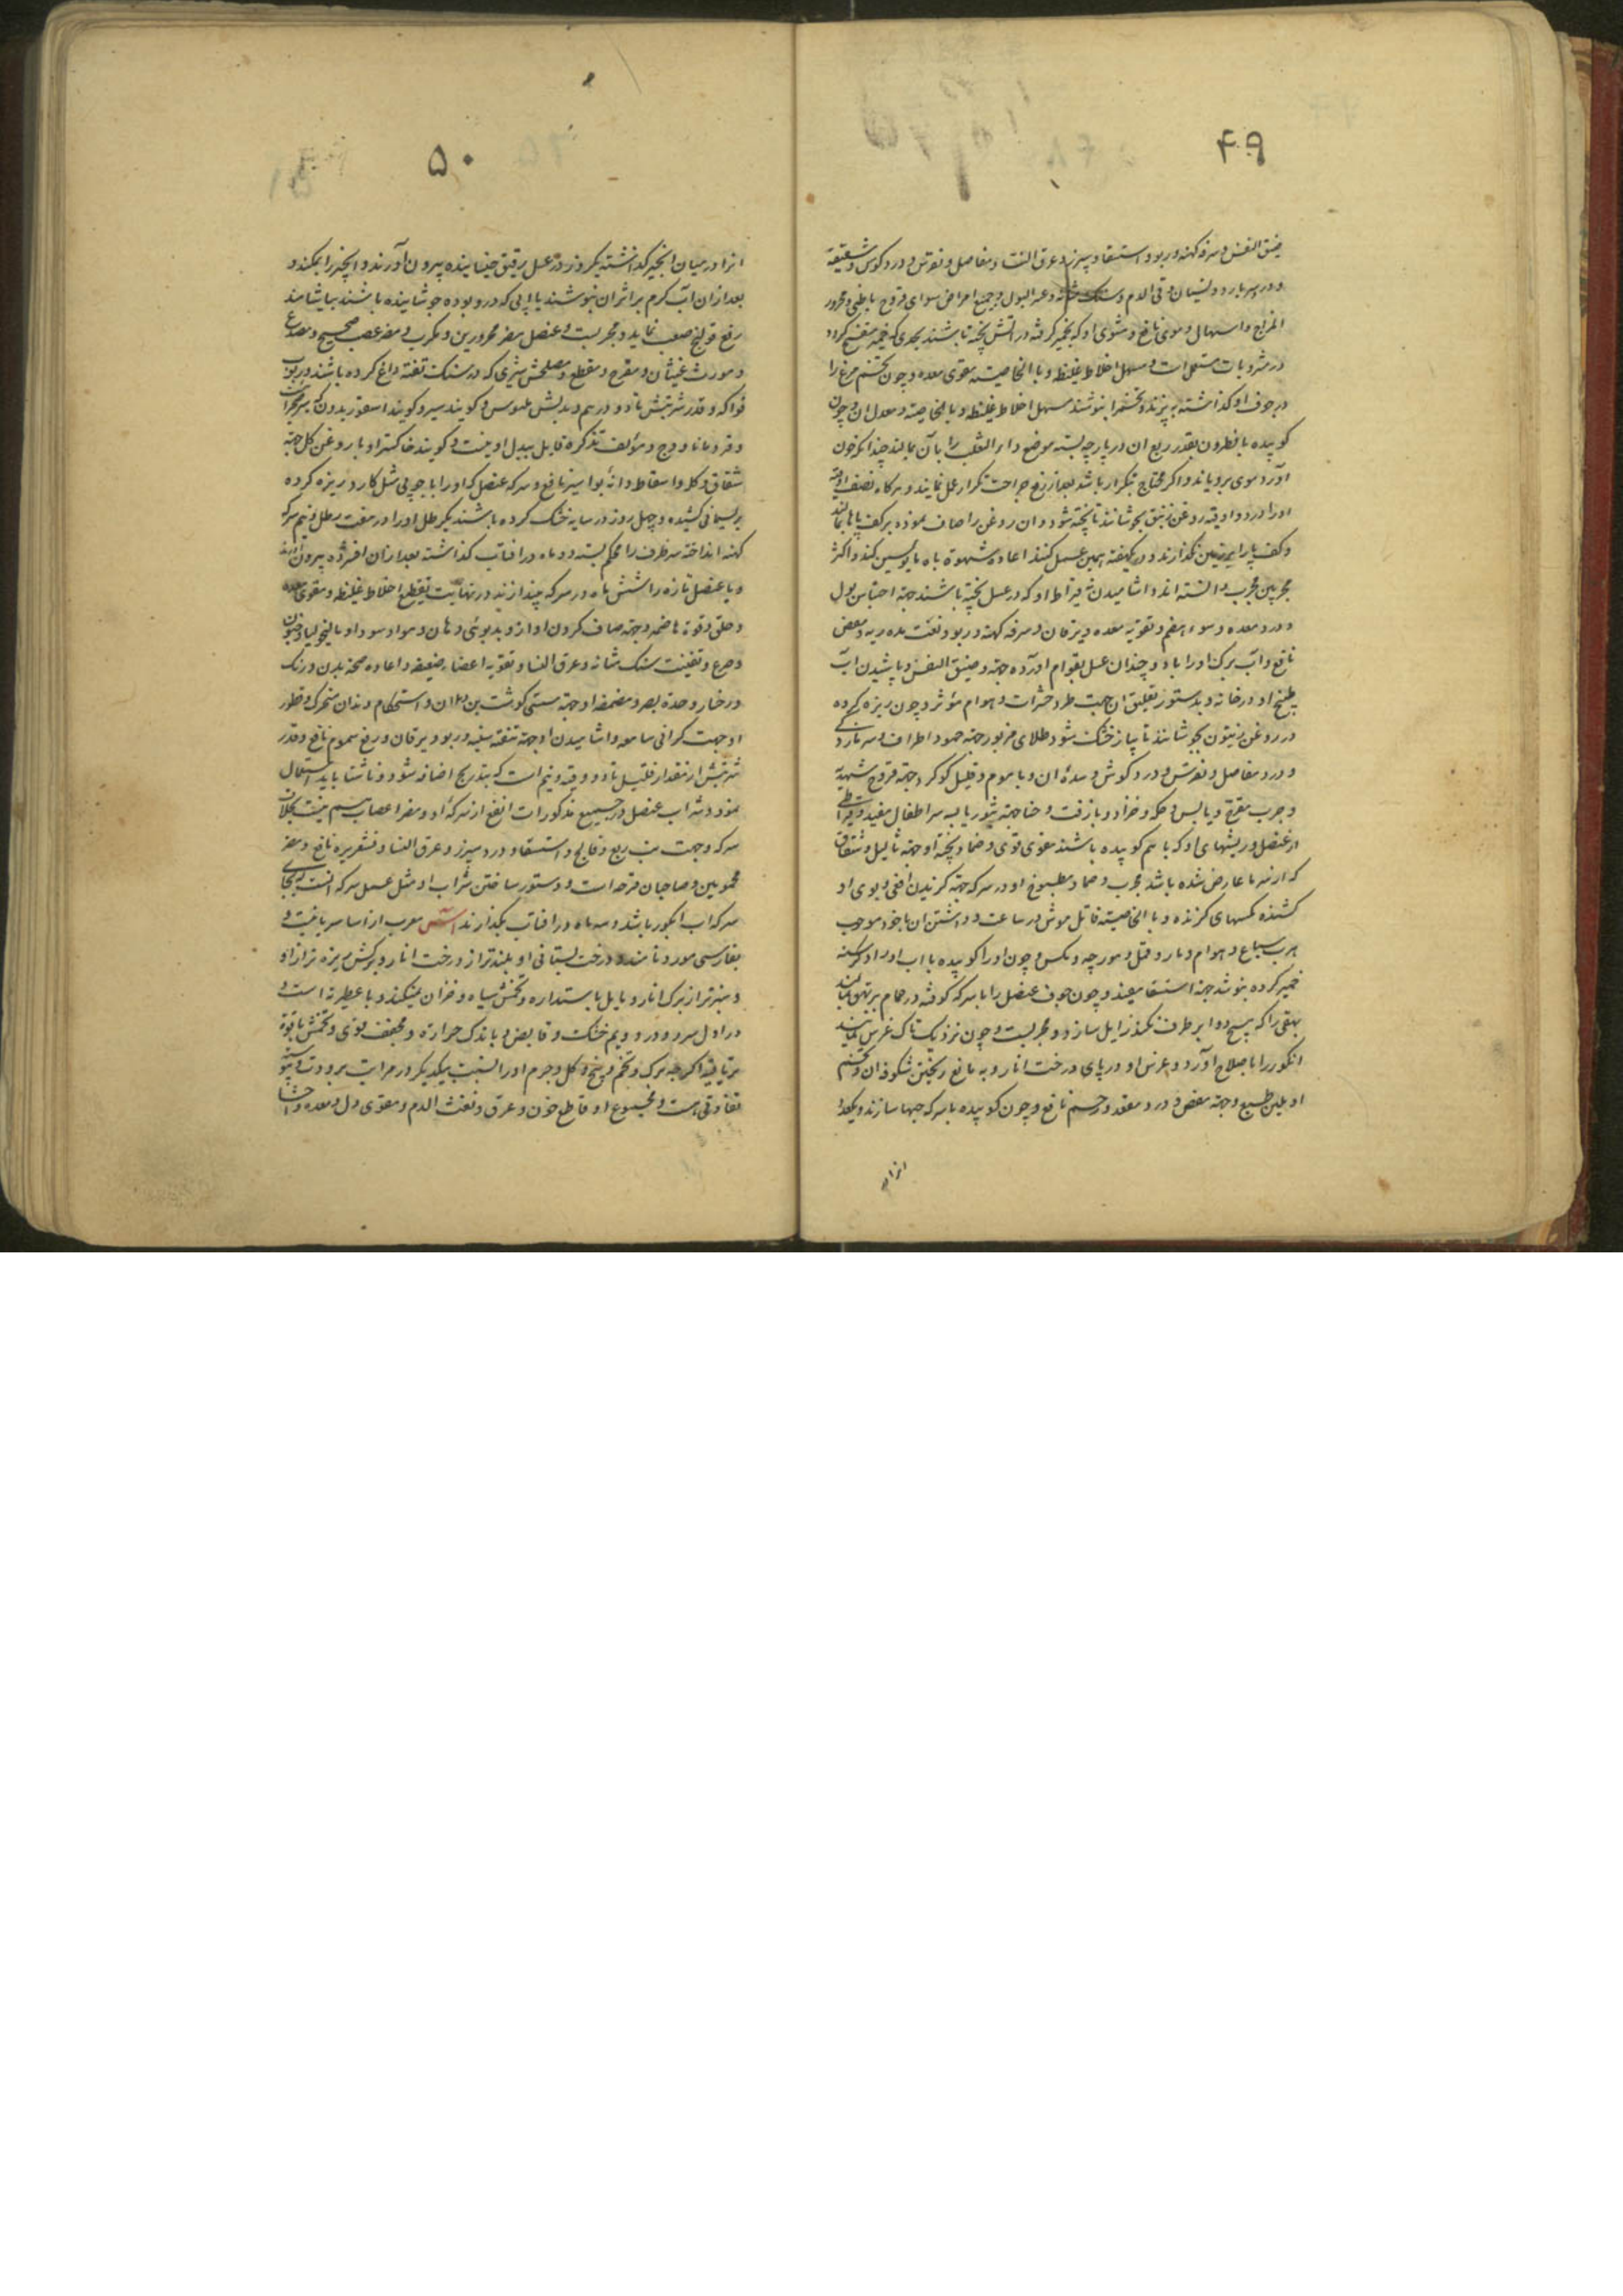 ۴۹
ضیق النفس و سرفه کهنه و ربو و استسقا و سپرز و عرق النسا و مفاصل و نقرس و درد کوش و شقیقه
و درد سر بارد و نسیان و قی الدم و سنک مثانه و عسر البول و جمیع امراض سوای قروح باطنی و محرور
المزاج و اسهال دموی نافع و مشوی او که بخمیر کرفته در آتش پخته باشند بحدی که خمیر
در مشروبات مستعمل است و مسهل اخلاط غلیظه و بالخاصیته مقوی معده و چون تخم مرغ را
در جوف او کذاشته به پزند و تخم را بنوشند مسهل اخلاط غلیظه و بالخاصیه و معدل ان و چون
کوبیده با نطرون بقدر ربع ان در پارچه بسته موضع داء الثعلب را بآن بمالند چندانکه خون
آورد موی برویاند و اکر محتاج بتکرار باشد بعد از رفع جراحت تکرار عمل نمایند و هرکاه نصف اوقیه
او را در دو اوقیه روغن زنبق بجوشانند تا پخته شود و ان روغن را صاف نموده بر کف پاها بمالند
و کف پا را بر زمین نکذارند و در یکهفته همین عمل کنند اعاده شهوة باه مایوسین کند و اکثر
مجربین مجرب دانسته اند و اشامیدن سه قیراط او که در عسل پخته باشند جهته احتباس بول
و درد معده و سوء هضم و تقویه معده و یرقان و سرفه کهنه و ربو و نفث مده ریه و مغص
نافع و آب برک او را با دو چندان عسل بقوام اورده جهته و ضیق النفس و پاشیدن آب
طبیخ او در خانه و بدستور تعلیق ان جهت طرد حشرات و هوام مؤثر و چون ریزه کرده
در روغن زیتون بجوشانند تا پیاز خشک شود طلای مزبور جهته جمود اطراف و سر ما زدکی
و درد مفاصل و نقرس و درد کوش و سدهٔ ان و با موم و قلیل کوکرد جهته قروح شهدیه
و جرب متقرح و یابس و حکه و خراز و با زفت و حنا جهته بثور یابسه سر اطفال مفید و قیراطی
از عنصل و ریشهای او که باهم کوبیده باشند مقوی قوی و ضماد پخته او جهته ثالیل و شقاق
که از سرما عارض شده باشد مجرب و ضماد مطبوخ او در سرکه جهته کزیدن افعی و بوی او
کشنده مکسهای کزنده و بالخاصیته قاتل موش در ساعت و داشتن ان با خود موجب
هرب سباع و هوام و مار و قمل و مورچه و مکس و چون او را کوبیده با اب او را در کرسنه
خمیر کرده بنوشند جهته استسقا مفید و چون جوف عنصل را با سرکه کوفته در حمام بر بهق بمالند
بهقی را که هیچ دوا بر طرف نکند زایل سازد و مجربست و چون نزدیک تاک غرس نمایند
انکور را باصلاح آورد و غرس او در پای درخت انار و به مانع ریختن شکوفه ان و تخم
او ملین طبع و جهته مغص و درد مقعد و رحم نافع و چون کوبیده با سرکه حبها سازند و یکعدد
انرا در
۵۰
انرا در میان انجیر کذاشته یکروز در عسل رقیق خیسانیده بیرون آورند و انجیر را بمکند و
بعد از ان آب کرم بر اثر ان بنوشند یا آبی که در و بوره جوشانیده باشند بیاشامند
رفع قولنج صعب نماید و مجربست و عنصل مضر محرورین و مکرب و مضر عصب صحیح و مصدع
و مورث غثیان و مقرح و مقطع و مصلحش شیری که در سنک تفته داغ کرده باشند و ربوب
فواکه و قدر شربتش تا دو درهم و بدلش بلبوس و کویند سیر و کویند اسقوردیون
و قردمانا و وج و مؤلف تذکره قایل ببدل او نیست و کویند خاکستر او با روغن کل جهته
شقاق و کلف و اسقاط دانهٔ بواسیر نافع و سرکه عنصل که او را با چوبی مثل کارد ریزه کرده
بریسمانی کشیده و چهل روز در سایه خشک کرده باشند یکرطل او را در هفت رطل و نیم سرکه
کهنه انداخته سر ظرف را محکم بسته دو ماه در افتاب کذاشته بعد از ان افشرده بیرون ارند
و با عنصل تازه را شش ماه در سرکه بیندازند در نهایت تقطیع اخلاط غلیظه و مقوی معده
و حلق و قوة هاضمه و جهته صاف کردن اواز و بدبوئی دهان و مواد سوداوی و مالیخولیا و جنون
و صرع و تفتیت سنک مثانه و عرق النسا و تقویه اعضاء ضعیفه و اعاده صحه بدن و رنک
و رخسار و حدة بصر و مضمضه او جهته سستی کوشت بن دندان و استحکام دندان متحرک و قطور
او جهت کرانی سامعه و اشامیدن او جهته تنقیه سینه و ربو و یرقان و رفع سموم نافع و قدر
شربتش از مقدار قلیل تا دو وقیه و نیم است که بتدریج اضافه شود و ناشتا باید استعمال
نمود و شراب عنصل در جمیع مذکورات انفع از سرکهٔ او و مضر اعصاب هم نیست بخلاف
سرکه و جهت تب ربع و فالج و استسقا و درد سپرز و عرق النسا و قشعریره نافع و مضر
محمومین و صاحبان قرحه است و دستور ساختن شراب او مثل عمل سرکه انست که بجای
سرکه اب انکور باشد و سه ماه در افتاب بکذارند آس معرب از اسا سریانیست و
بفارسی مورد نامند و درخت بستانی او بلندتر از درخت انار و برکش ریزه تر از او
و سبزتر از برک انار و مایل باستداره و تخمش سیاه و خزان نمیکند و با عطریه است و
در اول سرد و در دویم خشک و قابض و با اندک حرارة و مجفف قوی و تخمش با قوة
تریاقیه اکرچه برک و تخم و بیخ و کل و جرم او را نسبت بیکدیکر در مراتب برودت و یبوست
تفاوتی هست و مجموع او قاطع خون و عرق و نفث الدم و مقوی دل و معده و احشا